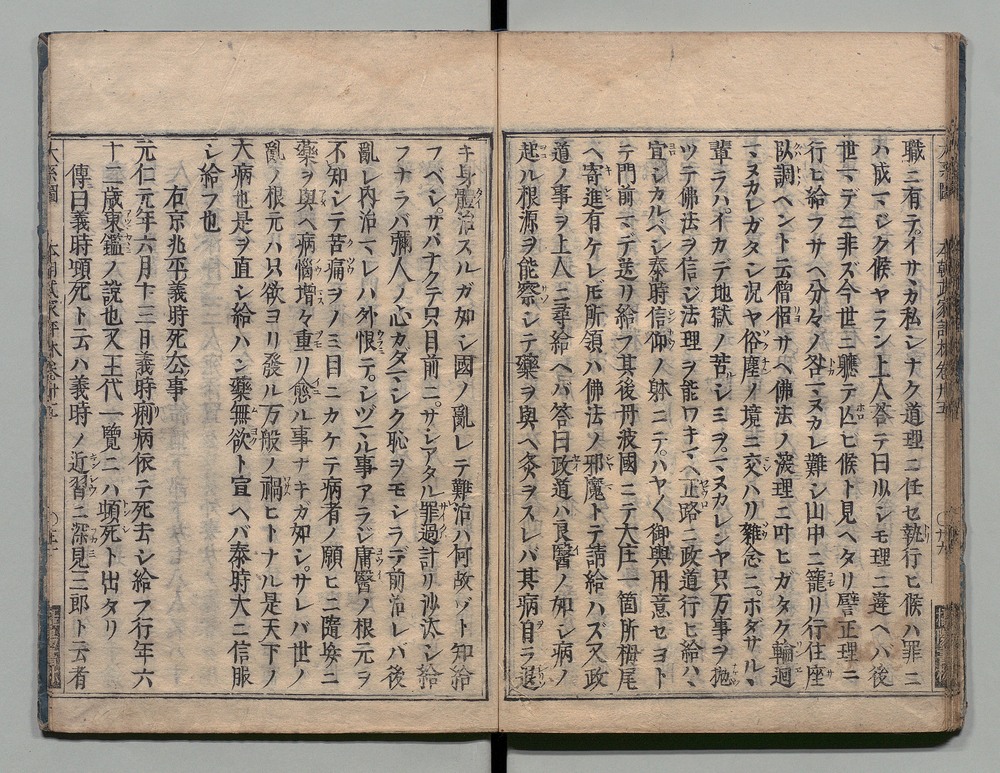 職ニ有テイサヽカ私シナク道理ニ任セ執行ヒ候ハ罪ニ
ハ成マジク候ヤラン上人答テ曰少シモ理ニ違ヘハ後
世マデニ非ズ今世ニ聽テ亡ヒ候ト見ヘタリ譬正理ニ
行ヒ給フサヘ分々ノ咎マヌカレ難シ山中ニ籠リ行住座
臥調ヘント云僧侶サヘ佛法ノ深理ニ叶ヒガタク輪廻
マヌカレガタシ况ヤ俗塵ノ境ニ交ハリ雜念ニホダサルヽ
輩ラハイカテ地獄ノ苦シミヲマヌカレンヤ只万事ヲ拋
ツテ佛法ヲ信ジ法理ヲ能ワキマヘ正路ニ政道行ヒ給ハヽ
宜シカルベシ泰時信仰ノ躰ニテハヤク御輿用意セヨト
テ門前マデ送リ給フ其後丹波國ニテ大庄一箇所栂尾
ヘ寄進有ケレ𪜈所領ハ佛法ノ邪魔トテ請給ハズ又政
道ノ事ヲ上人ニ尋給ヘバ答曰政道ハ良醫ノ如シ病ノ
起ル根源ヲ能察シテ藥ヲ與ヘ灸ヲスレバ其病自ラ退
キ身體治スルガ如シ國ノ亂レテ難治ハ何故ゾト知給
フベシサバナクテ只目前ニサシアタル罪過計リ沙汰シ給
フナラバ彌人ノ心カダマシク恥ヲモシラデ前治レバ後
亂レ内治マレハ外恨テシヅマル事アラジ庸醫ノ根元ヲ
不知シテ苦痛ヲノミ目ニカケテ病者ノ願ヒニ隨ヒ
藥ヲ與ヘ病惱增々重リ愈ル事ナキガ如シサレバ世ノ
亂ノ根元ハ只欲ヨリ發ル万般ノ禍ヒトナル是天下ノ
大病也是ヲ直シ給ハン藥無欲ト宣ヘバ泰時大ニ信服
シ給フ也
右京兆平義時死公事
元仁元年六月十三日義時痢病依テ死去シ給フ行年六
十三歳東鑑ノ說也又王代一覽ニハ頓死ト出タリ
傳曰義時頓死ト云ハ義時ノ近習ニ深見三郎ト云者